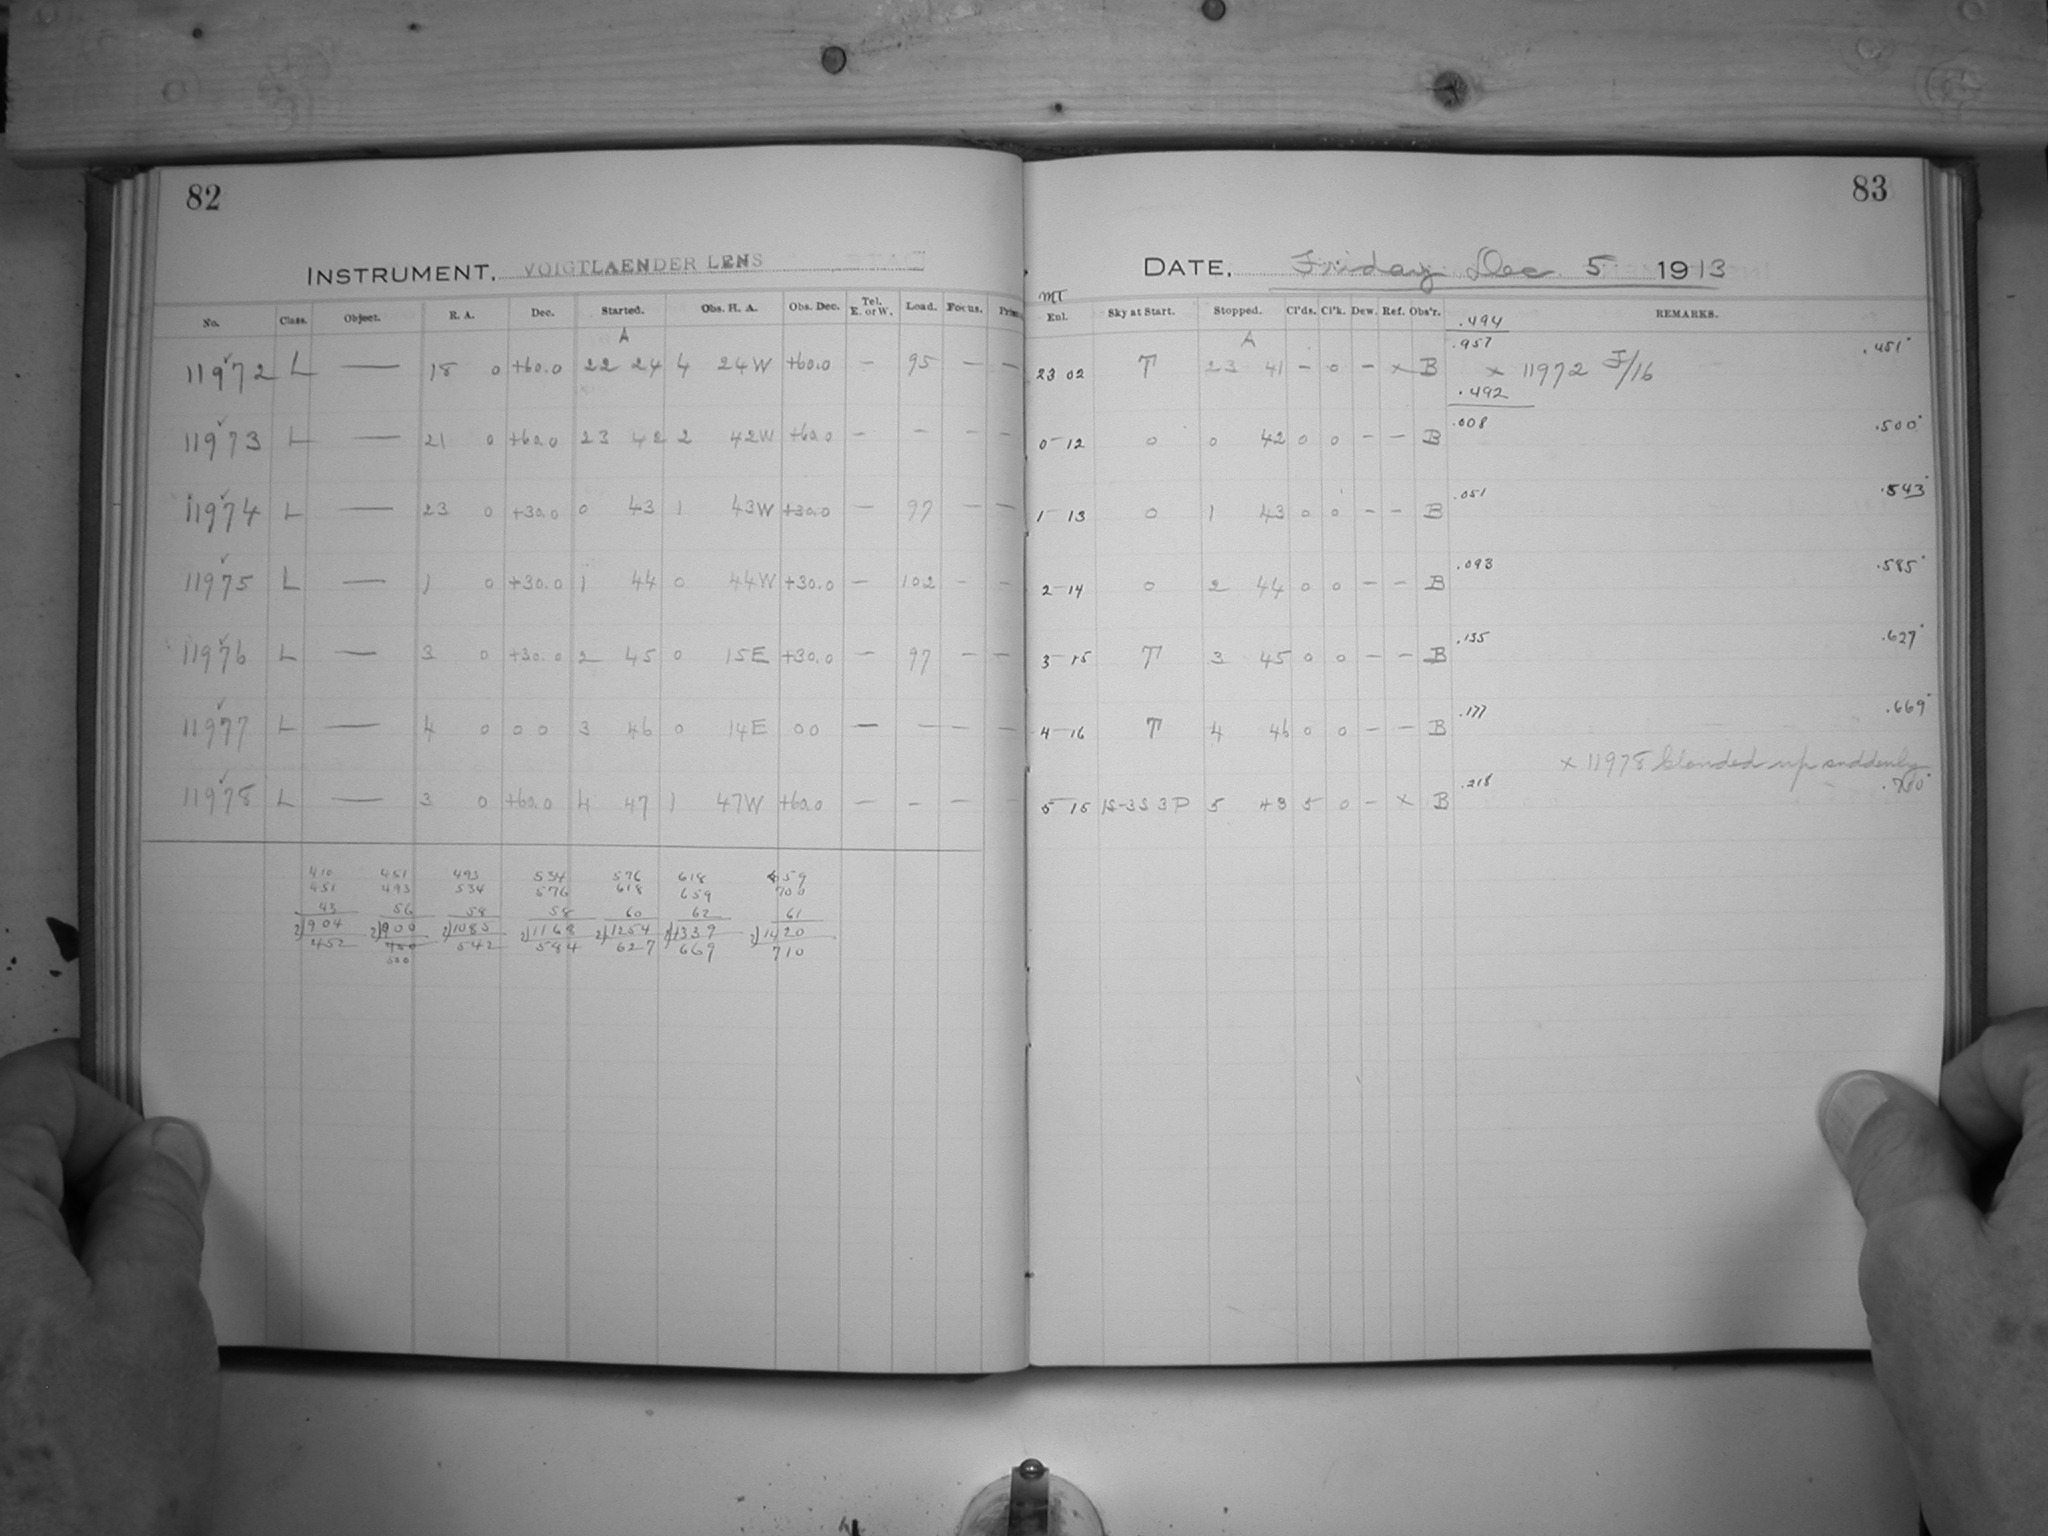 82
INSTRUMENT, VOIGTLAENDER LENS
No. Class. Object. R. A. Dec. Started. Obs. H. A. Obs. Dec. Tel. E. or W. Load. Focus.
A
11972 L — 18 0 +60.0 22 24 4 24W +60.0 — 95 — —
11973 L — 21 0 +60.0 23 42 2 42W +60.0 — — — —
11974 L — 23 0 +30.0 0 43 1 43W +30.0 — 97 — —
11975 L — 1 0 +30.0 1 44 0 44W +30.0 — 102 — —
11976 L — 3 0 +30.0 2 45 0 15E +30.0 — 97 — —
11977 L — 4 0 0 0 3 46 0 14E 0 0 — — — —
11978 L — 3 0 +60.0 4 47 1 47W +60.0 — — — —
410 451 493 534 576 618 659
451 493 534 576 618 659 700
43 56 58 58 60 62 61
2)904 2)900 2)1085 2)1168 2)1254 2)1339 2)1420
452 450 542 584 627 669 710
500
83
DATE, Friday Dec 5 1913
MT
Enl. Sky at Start. Stopped. Cl'ds. Cl'k. Dew. Ref. Obs'r. REMARKS.
.494
A .957 .451
23 02 T 23 41 — 0 — x B x 11972 F/16
.492
.008 .500
0 12 0 0 42 0 0 — — B
.051 .543
1 13 0 1 43 0 0 — — B
.093 .585
2 14 0 2 44 0 0 — — B
.135 .627
3 15 T 3 45 0 0 — — B
.177 .669
4 16 T 4 46 0 0 — — B
x 11978 Clouded up suddenly
.218 .710
5 15 1S-3S 3P 5 43 5 0 — x B